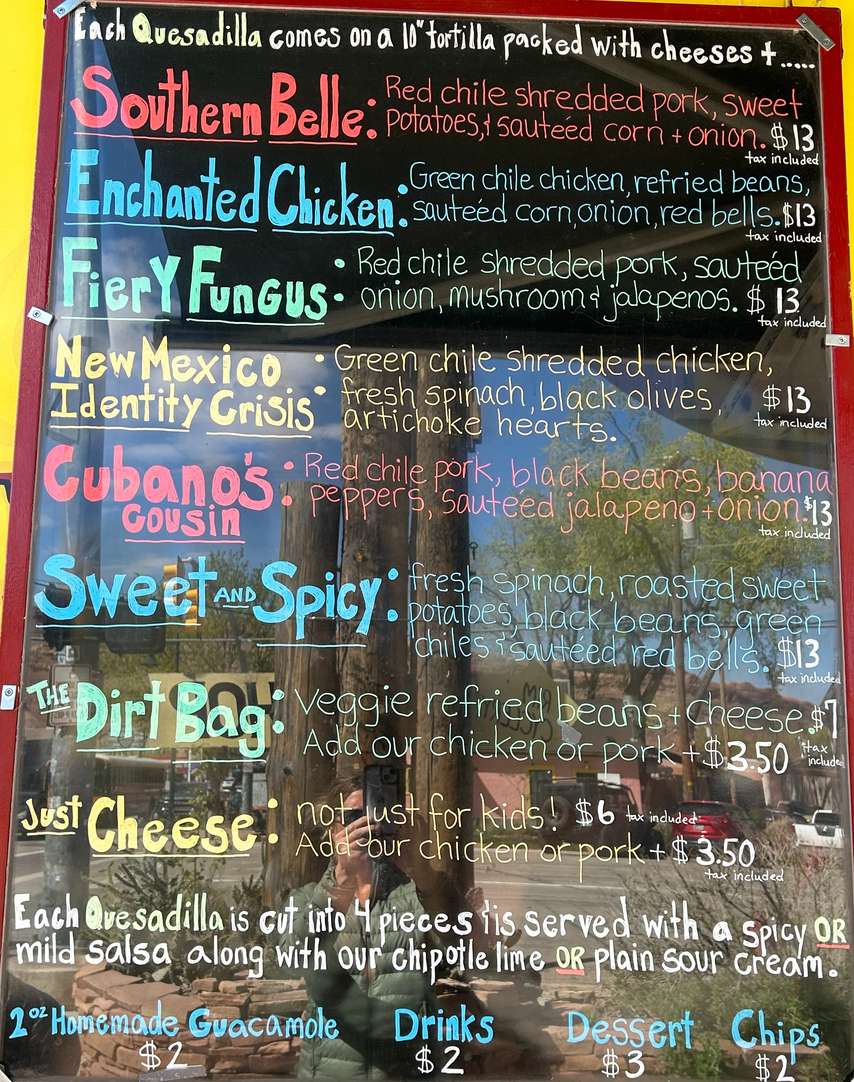 Each Quesadilla comes on a 10" tortilla packed with cheeses +.....
Southern Belle: Red chile shredded pork, sweet
potatoes, & sautéed corn + onion. $13
tax included
Enchanted Chicken: Green chile chicken, refried beans,
sautéed corn, onion, red bells. $13
tax included
Fiery Fungus: Red chile shredded pork, sauteéd
onion, mushroom & jalapenos. $13
tax included
New Mexico
Identity Crisis: Green chile shredded chicken,
fresh spinach, black olives, $13
artichoke hearts. tax included
Cubano's
Cousin: Red chile pork, black beans, banana
peppers, sauteéd jalapeno + onion. $13
tax included
Sweet AND Spicy: fresh spinach, roasted sweet
potatoes, black beans, green
chiles & sautéed red bells. $13
tax included
THE Dirt Bag: Veggie refried beans + cheese. $7
Add our chicken or pork + $3.50 tax included
Just Cheese: not just for kids! $6 tax included
Add our chicken or pork + $3.50
tax included
Each Quesadilla is cut into 4 pieces & is served with a spicy OR
mild salsa along with our chipotle lime OR plain sour cream.
2oz Homemade Guacamole Drinks Dessert Chips
$2 $2 $3 $2